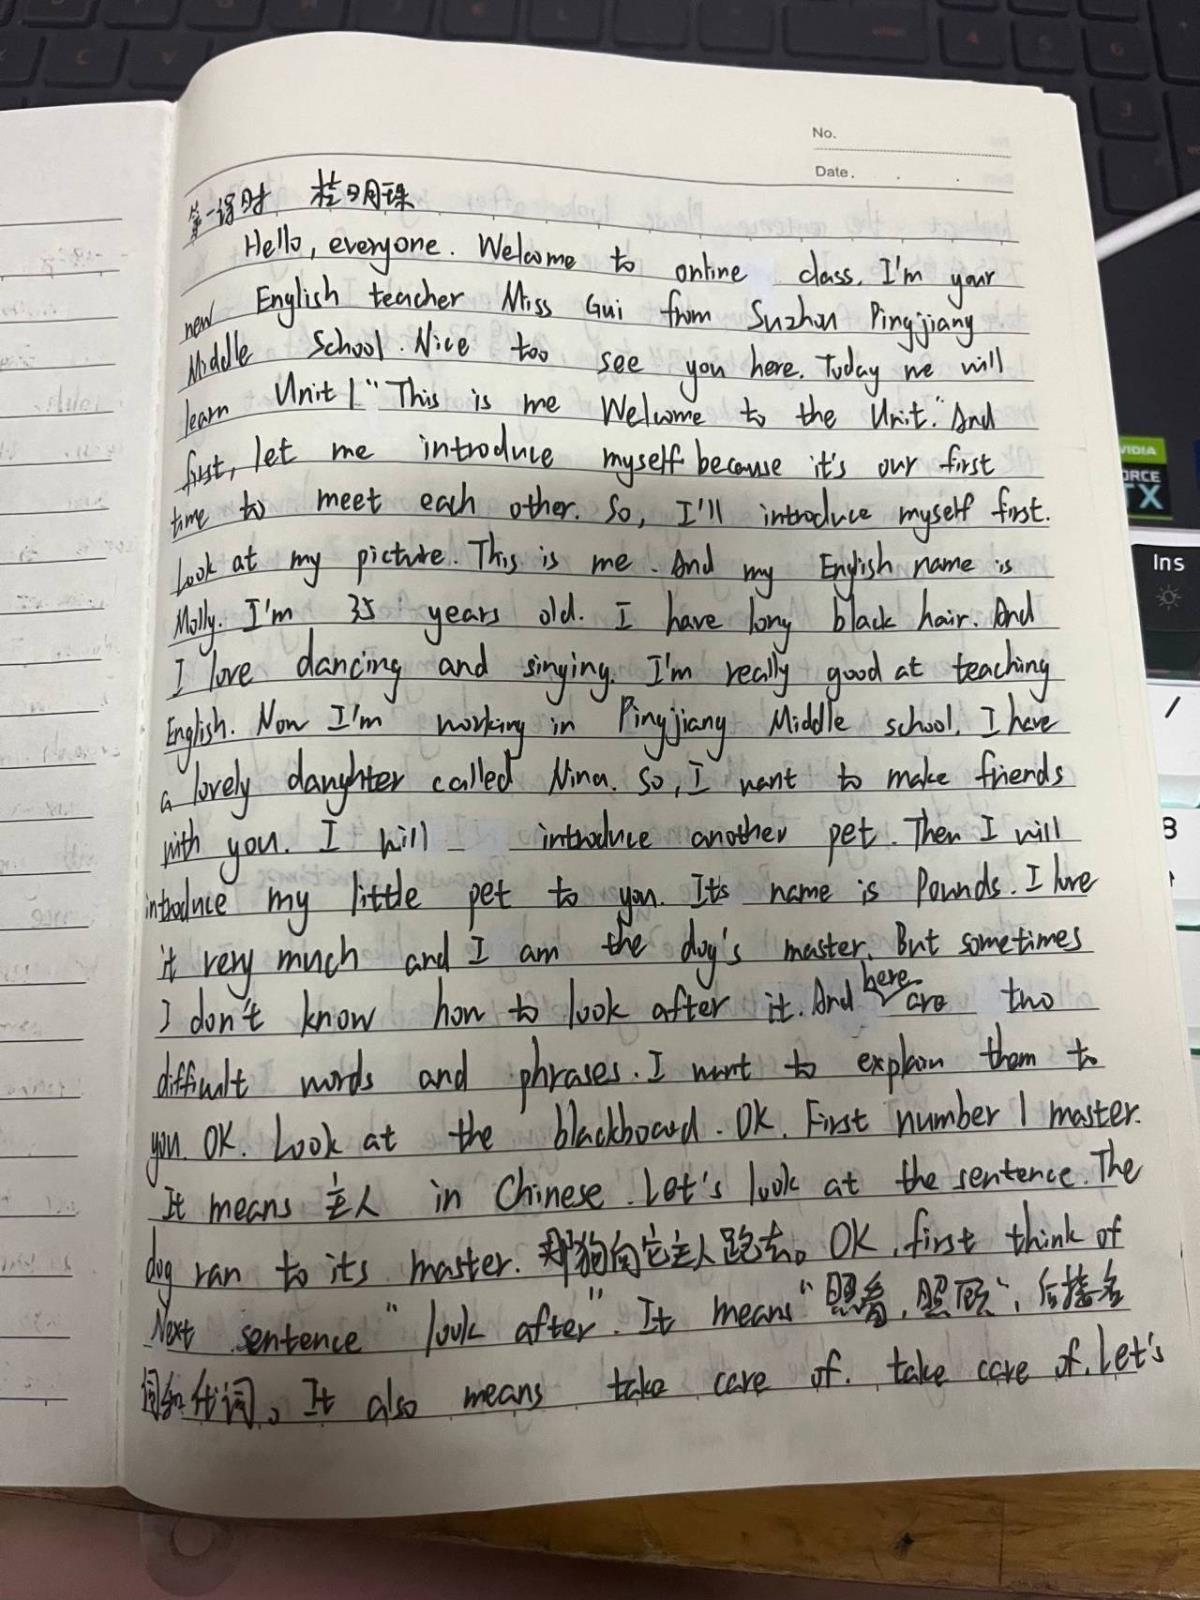 No.
Date.
第一课时 桂明珠
Hello, everyone. Welcome to online class. I'm your
new English teacher Miss Gui from Suzhou Pingjiang
Middle School. Nice too see you here. Today we will
learn Unit 1 "This is me Welcome to the Unit." And
first, let me introduce myself because it's our first
time to meet each other. So, I'll introduce myself first.
Look at my picture. This is me. And my English name is
Molly. I'm 35 years old. I have long black hair. And
I love dancing and singing. I'm really good at teaching
English. Now I'm working in Pingjiang Middle school. I have
a lovely daughter called Nina. So, I want to make friends
with you. I will introduce another pet. Then I will
introduce my little pet to you. Its name is Pounds. I love
it very much and I am the dog's master. But sometimes
I don't know how to look after it. And here are two
difficult words and phrases. I want to explain them to
you. OK. Look at the blackboard. OK. First number 1 master.
It means 主人 in Chinese. Let's look at the sentence. The
dog ran to its master. 那狗向它主人跑去。OK, first think of
Next sentence "look after". It means "照看,照顾", 后接名
词和代词。It also means take care of. take care of. Let's
NVIDIA
RTX
Ins